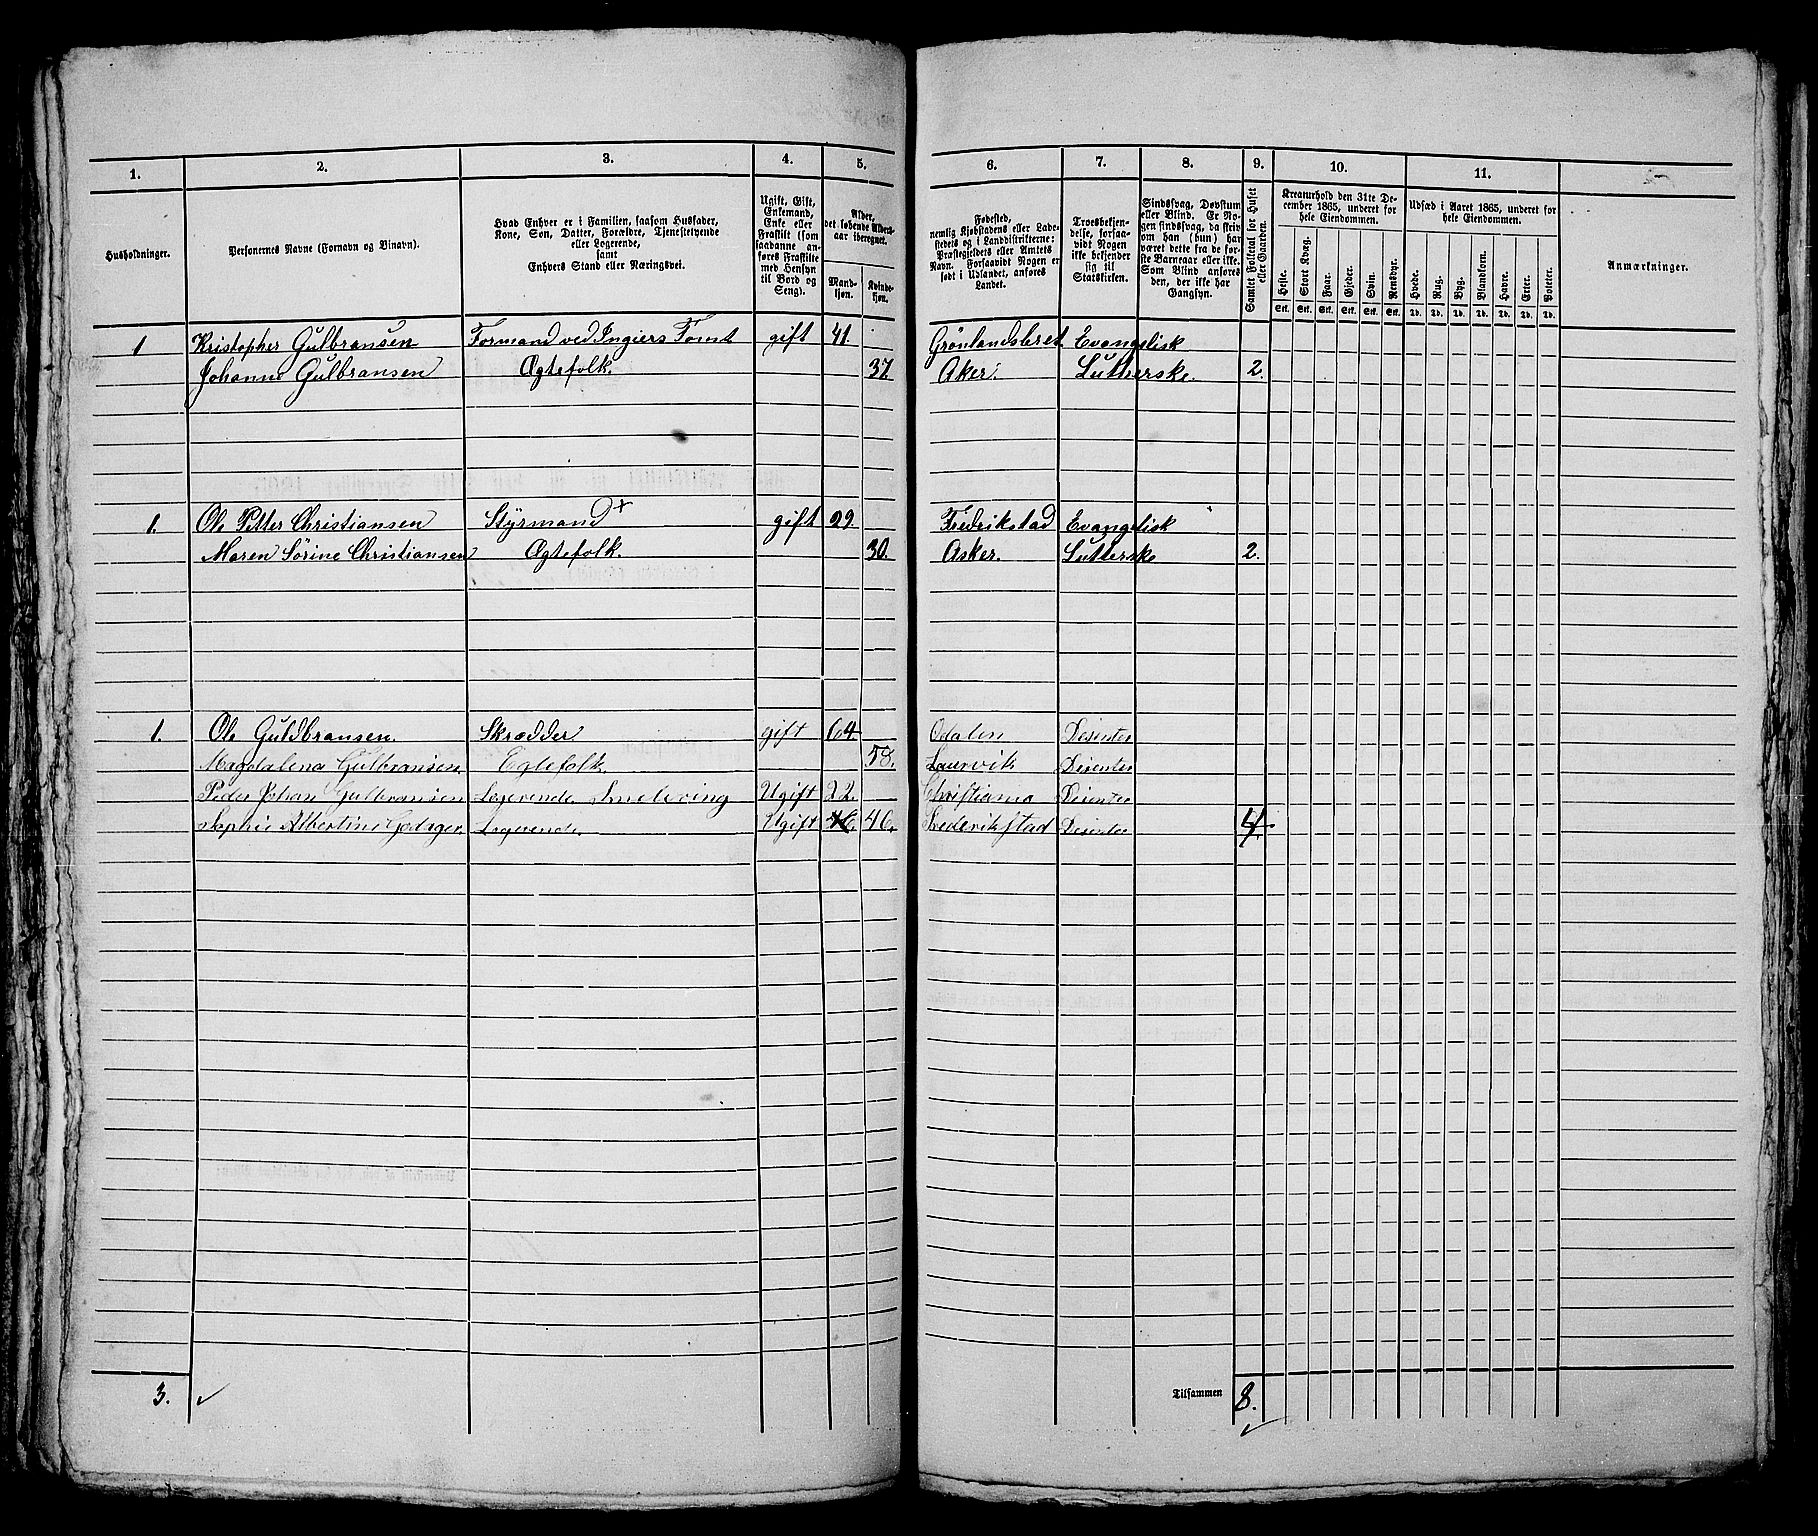 1. 2. 3. 4. 5. 6. 7. 8. 9. 10. 11.
Husholdninger.
Personernes Navne (Fornavn og Binavn).
Hvad Enhver er i Familien, saasom Husfader,
Kone, Søn, Datter, Forældre, Tjenestetyende
eller Logerende,
samt
Enhvers Stand eller Næringsvei.
Ugift, Gift,
Enkemand,
Enke eller
Fraskilt (som
saadanne an-
føres Fraskilte
med Hensyn
til Bord og
Seng).
Alder,
det løbende Alders-
aar iberegnet.
Mand-
kjøn.
Kvinde-
kjøn.
Fødested,
nemlig Kjøbstadens eller Lade-
stedets og i Landdistrikterne:
Præstegjeldets eller Amtets
Navn. Forsaavidt Nogen er
født i Udlandet, anføres
Landet.
Troesbekjen-
delse, forsaa-
vidt Nogen
ikke bekjender
sig til
Statskirken.
Sindssvag, Døvstum
eller Blind. Er No-
gen sindssvag, da skriv
om han (hun) har
været dette fra de før-
ste Barneaar eller ikke.
Som Blind anføres
den, der ikke har
Gangsyn.
Samlet Folketal for Huset
eller Gaarden.
Kreaturhold den 31te De-
cember 1865, underet for
hele Eiendommen.
Heste. Stort Kvæg. Faar. Gjeder. Svin. Rensdyr.
Stk. Stk. Stk. Stk. Stk. Stk.
Udsæd i Aaret 1865, underet for
hele Eiendommen.
Hvede. Rug. Byg. Blandkorn. Havre. Erter. Poteter.
Td. Td. Td. Td. Td. Td. Td.
Anmærkninger.
1 Kristopher Gulbransen Formand ved Ingiers Tomt gift 41. Grönlandsleret Evangelisk
Johanne Gulbransen Ægtefolk. 37 Aker. Lutherske. 2.
1. Ole Petter Christiansen Styrmand + gift 29. Fredrikstad Evangelisk
Maren Sörine Christiansen Ægtefolk. 30. Asker. Lutterske 2.
1. Ole Guldbransen. Skrædder gift 64 Odalen Desenter
Magdalena Gulbransen. Egtefolk. 58. Laurvik Desenter
Peder Johan Gulbransen Logerende. Ugift 22. Christiania Desenter
Sophie Albertine Logerende. Ugift 46. Frederikstad Desenter 4.
3. Tilsammen 8.